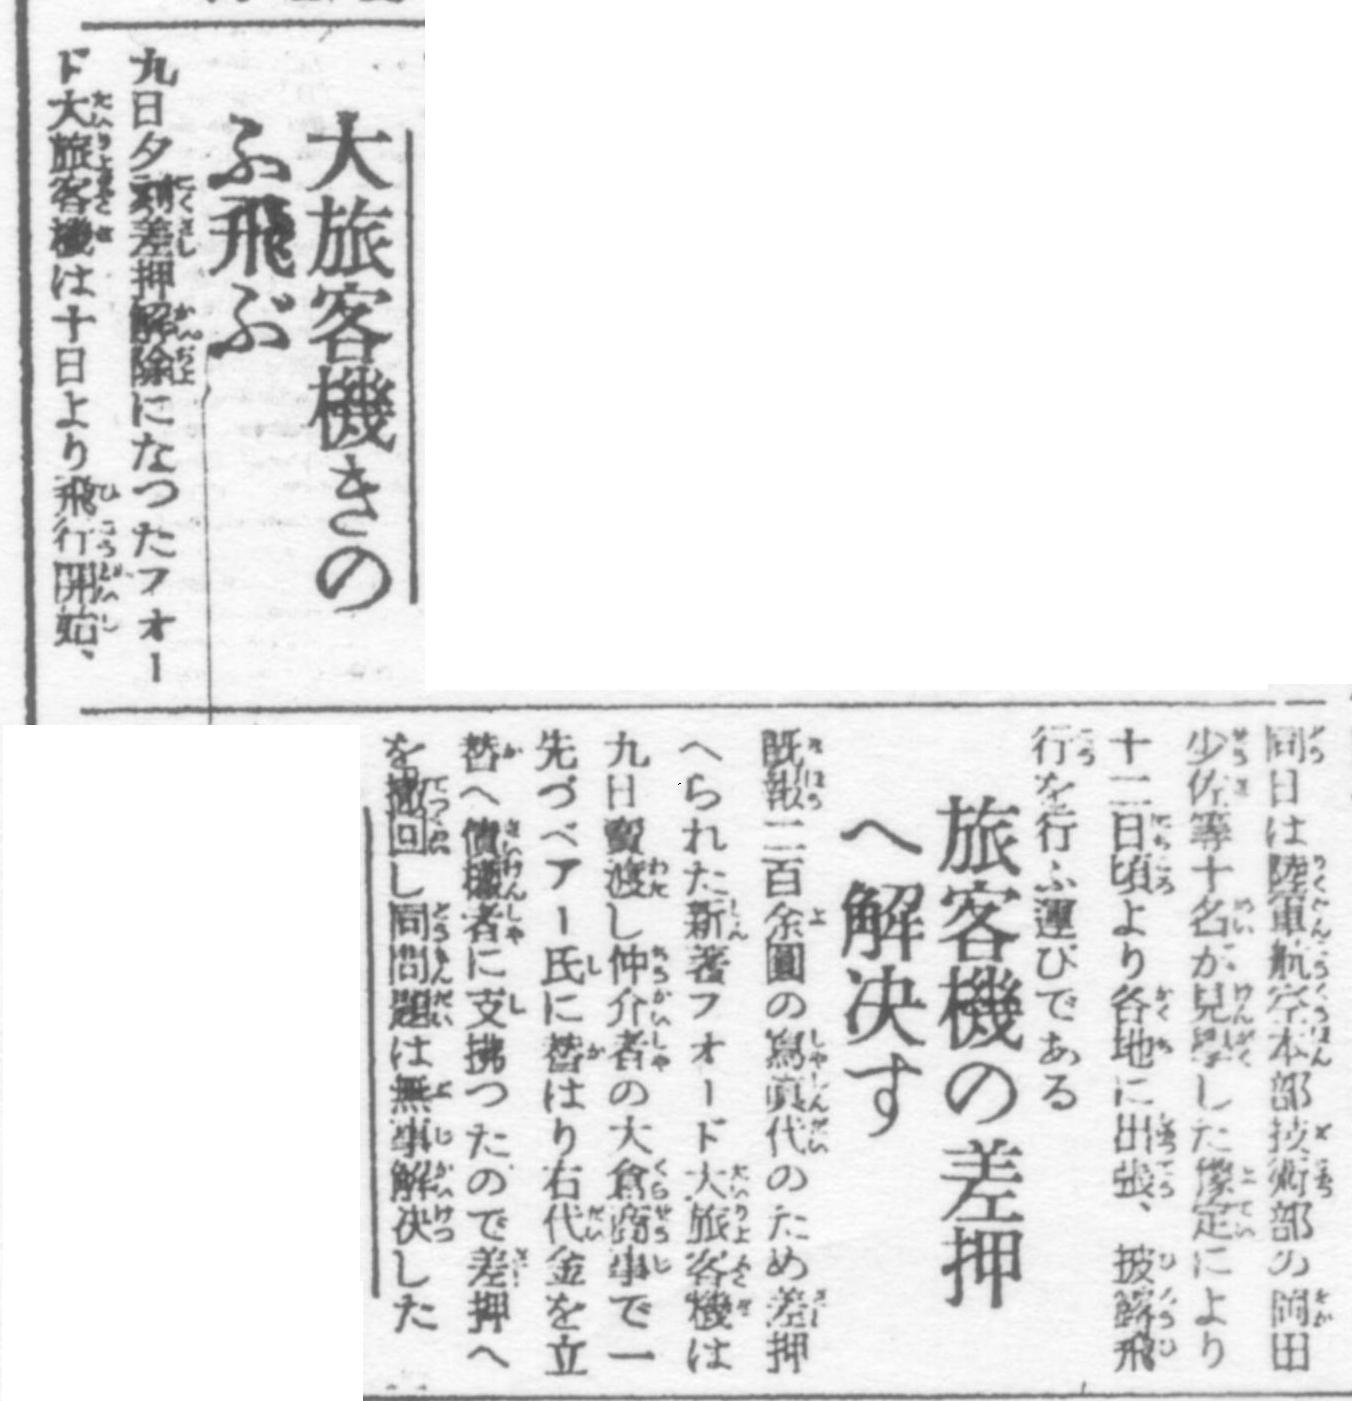 大旅客機きの
ふ飛ぶ
九日夕刻差押解除になつたフオー
ド大旅客機は十日より飛行開始、
同日は陸軍航空本部技術部の岡田
少佐等十名が見學した豫定により
十二日頃より各地に出張、披露飛
行を行ふ運びである
旅客機の差押
へ解決す
既報二百余圓の寫眞代のため差押
へられた新着フオード大旅客機は
九日買渡し仲介者の大倉商事で一
先づベアー氏に替はり右代金を立
替へ債權者に支拂つたので差押へ
を撤回し同問題は無事解決した